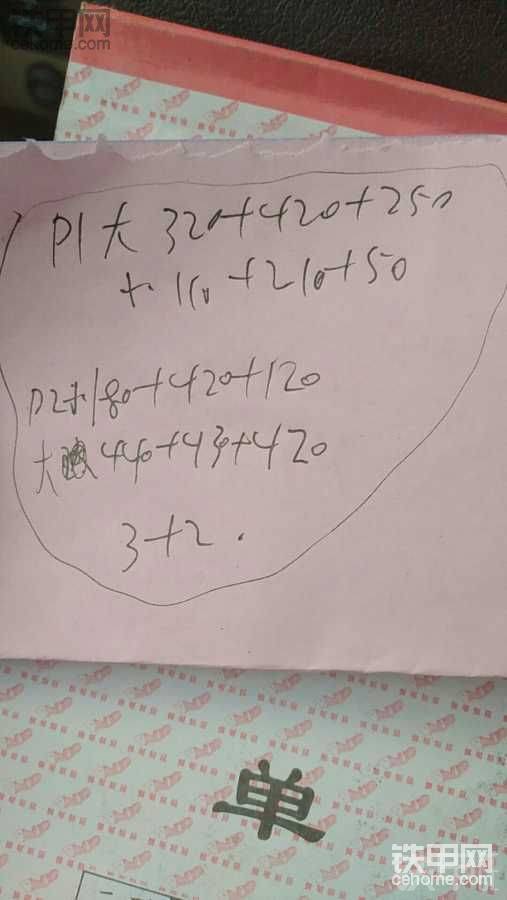 铁甲网
cehome.com
P1大 320+420+250
+小 110+210+50
P2小180+420+120
大 440+430+420
3+2.
单
铁甲网
cehome.com